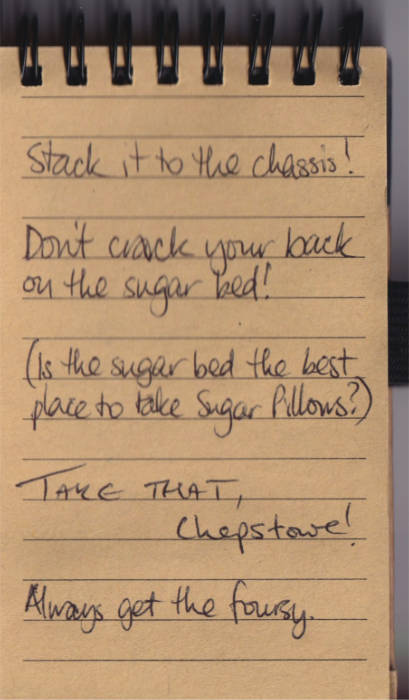 Stack it to the chassis!
Don't crack your back
on the sugar bed!
(Is the sugar bed the best
place to take Sugar Pillows?)
TAKE THAT,
Chepstowe!
Always get the foursy.